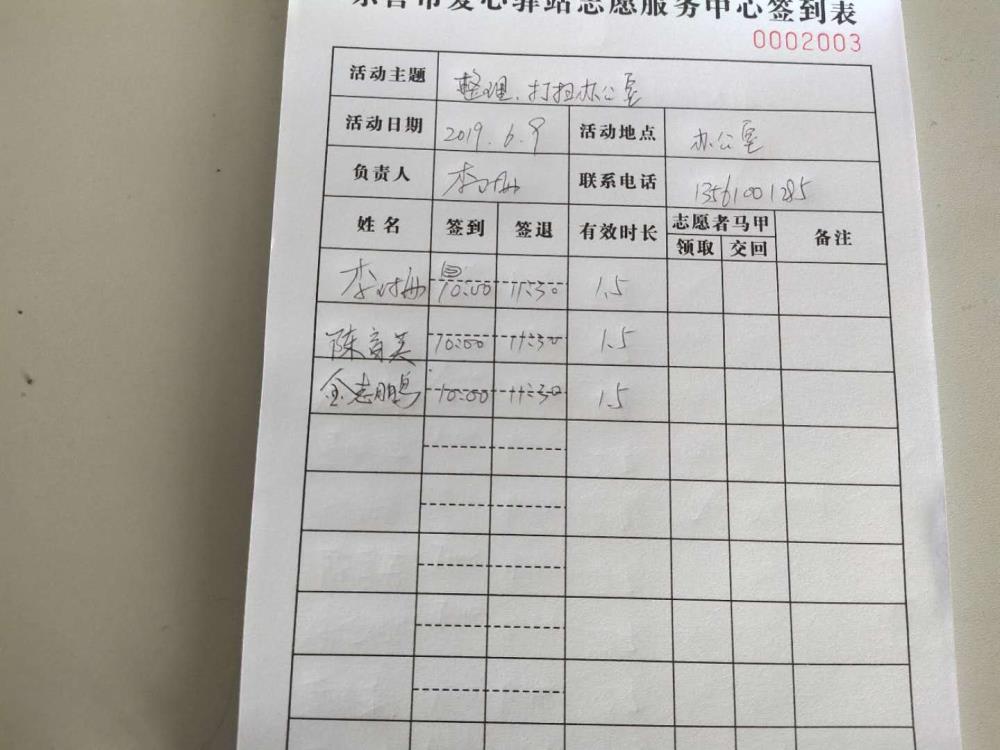 东营市爱心驿站志愿服务中心签到表
0002003
活动主题 整理、打扫办公室
活动日期 2019.6.9 活动地点 办公室
负责人 李 联系电话 13561001285
姓名 签到 签退 有效时长 志愿者马甲 备注
领取 交回
李 10:00 11:30 1.5
陈 10:00 11:30 1.5
金志鹏 10:00 11:30 1.5